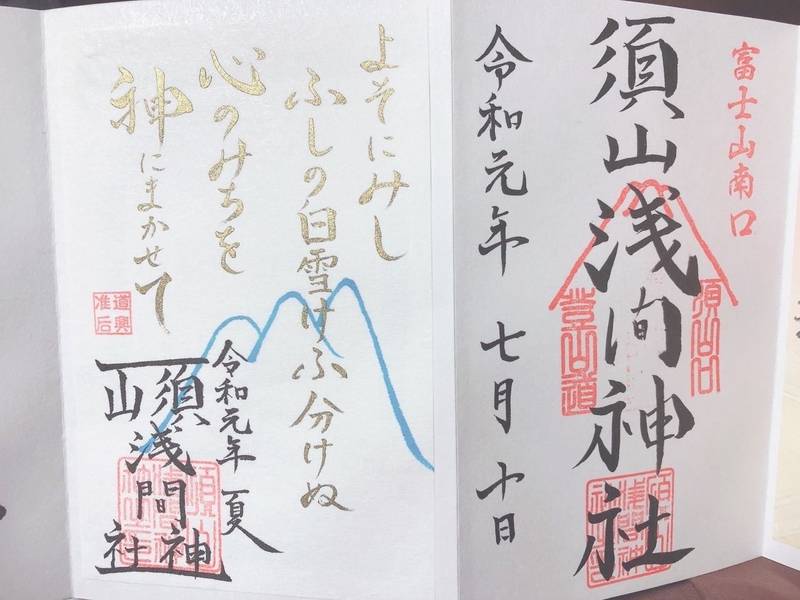 富士山南口
須山浅間神社
須山口
登山道
令和元年 七月 十日
よそにみし
ふしの白雪けふ分けぬ
心のみちを
神にまかせて
道興
准后
令和元年 夏
須山
浅間神社